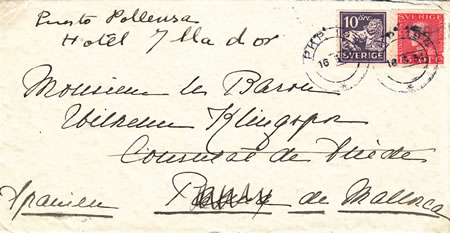 Puerto Pollensa
Hotel Illador
10 ÖRE
SVERIGE
SVERIGE
Monsieur le Baron
Wilhelm Klingspor
Consulat de Suède
Spanien de Mallorca